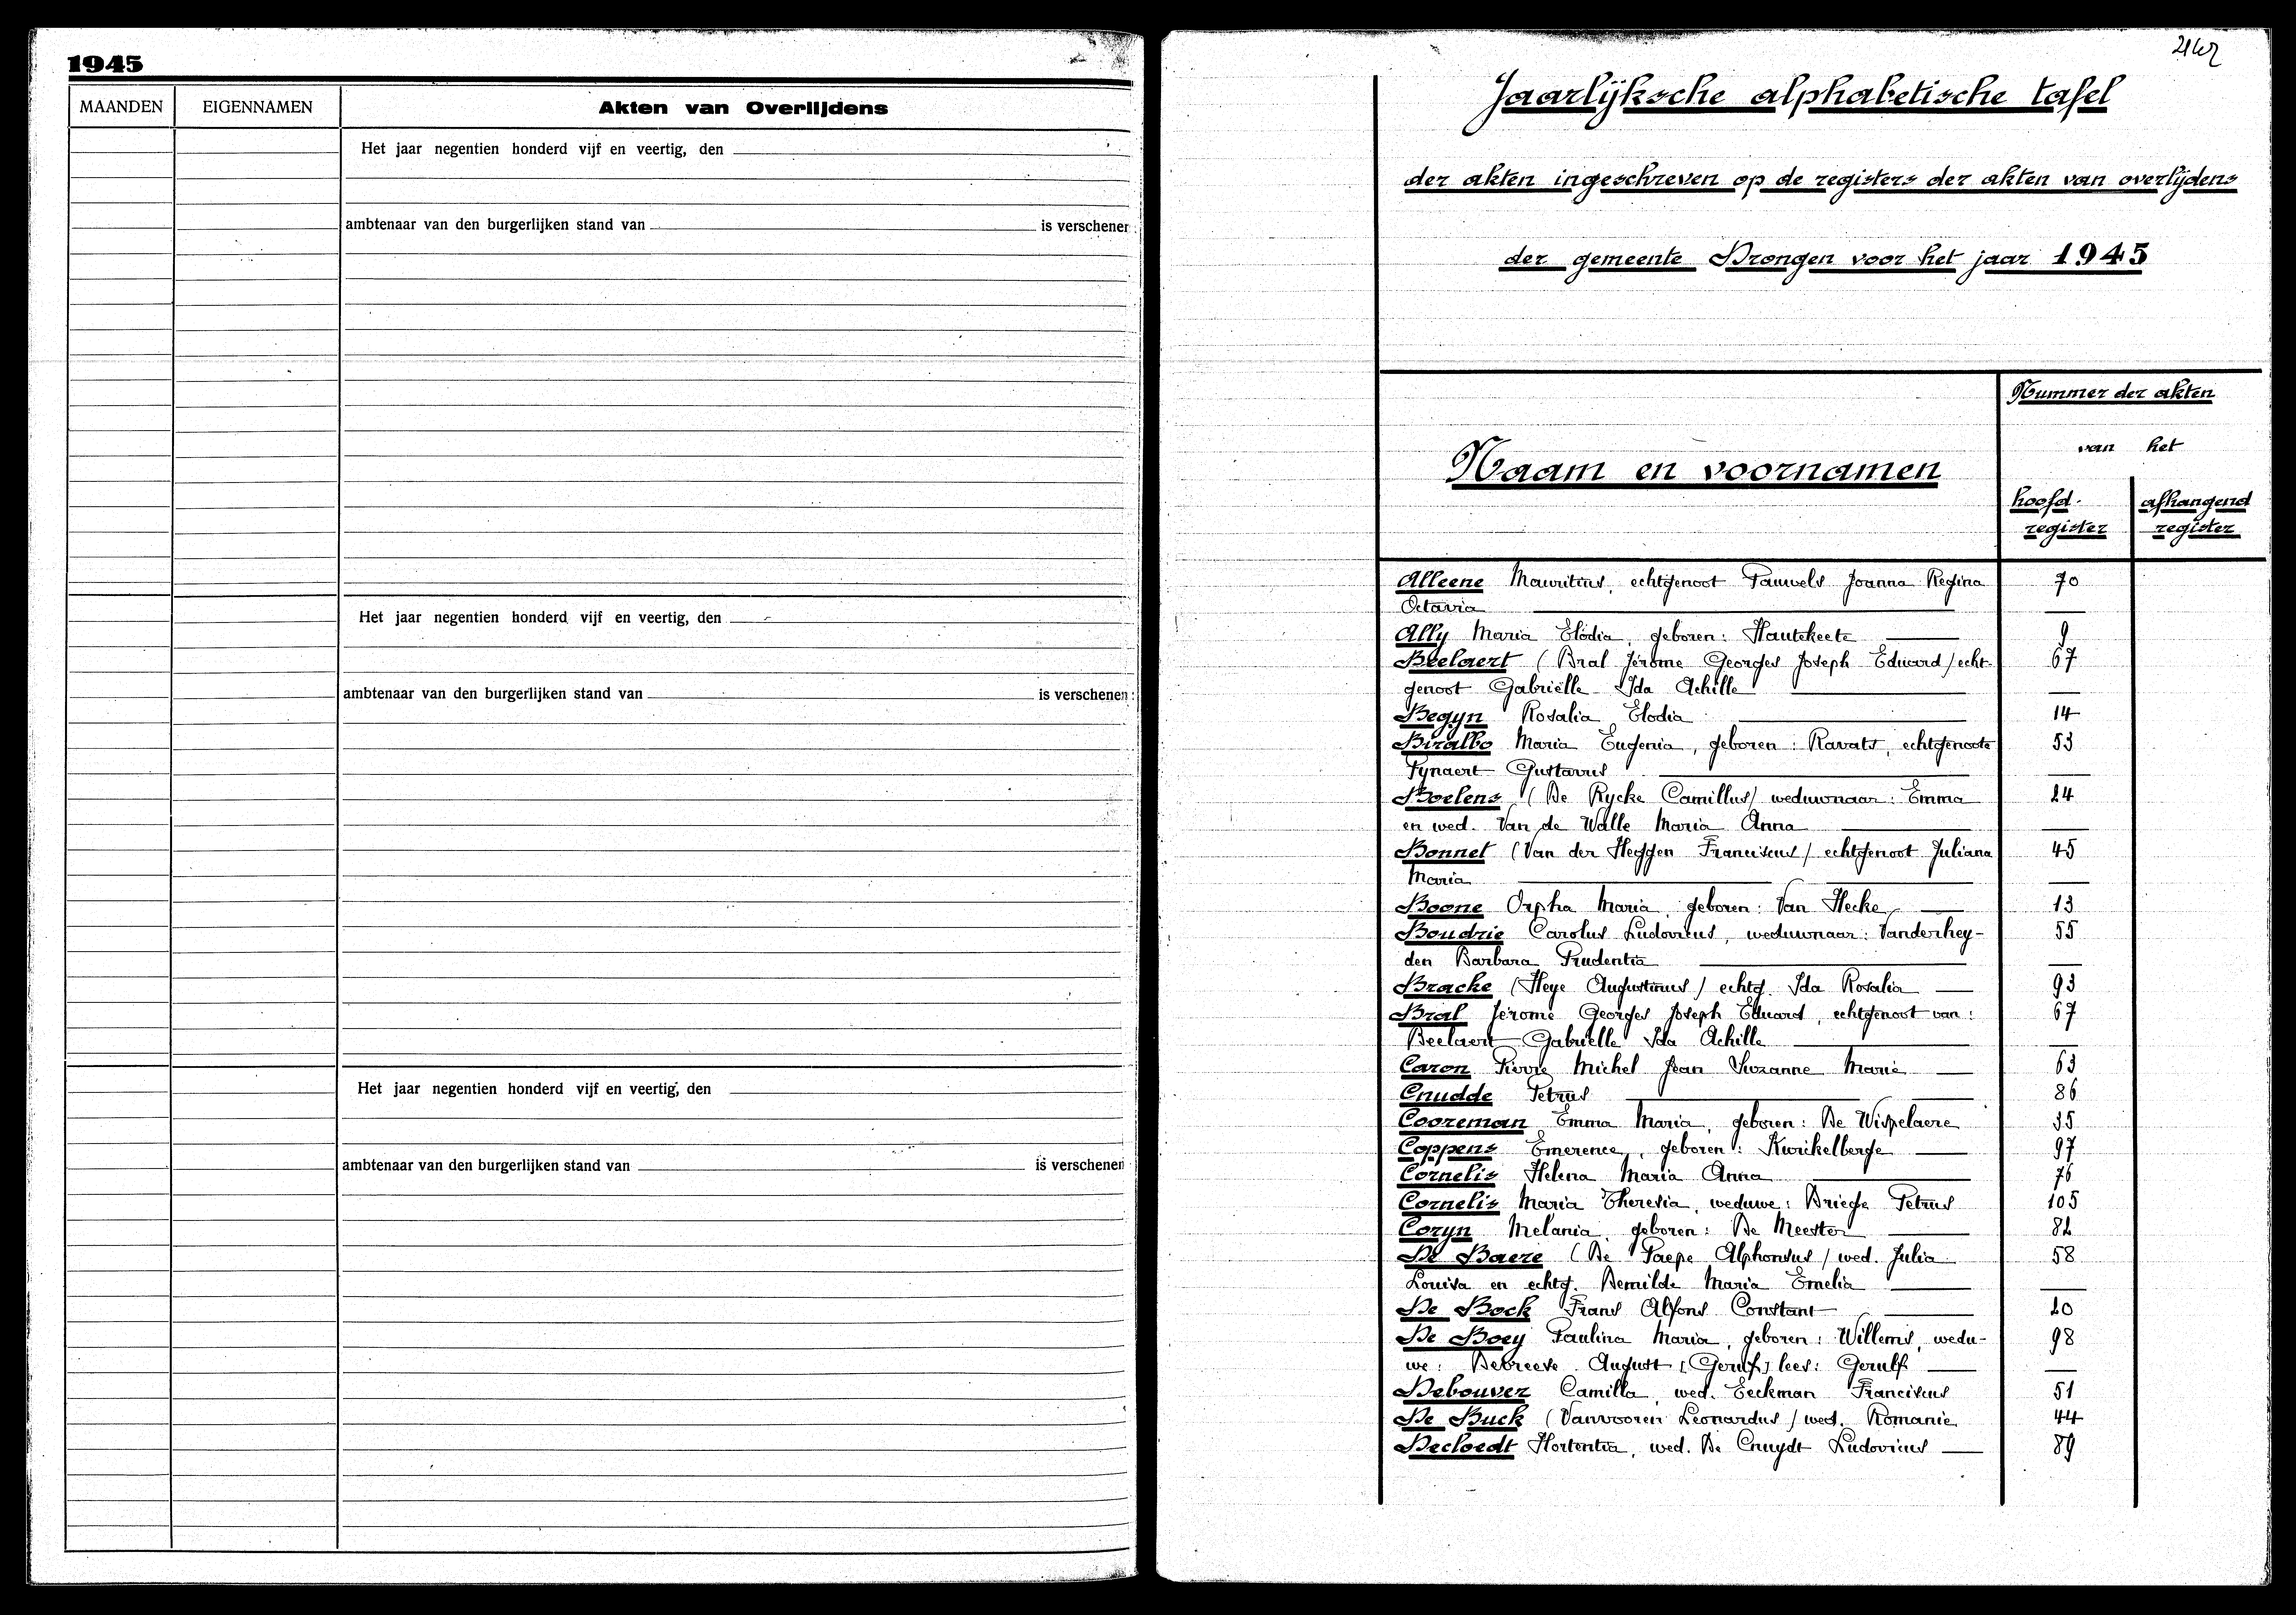 1945
MAANDEN EIGENNAMEN Akten van Overlijdens
Het jaar negentien honderd vijf en veertig, den
ambtenaar van den burgerlijken stand van is verschenen
Het jaar negentien honderd vijf en veertig, den
ambtenaar van den burgerlijken stand van is verschenen
Het jaar negentien honderd vijf en veertig, den
ambtenaar van den burgerlijken stand van is verschenen
Jaarlijksche alphabetische tafel
der akten ingeschreven op de registers der akten van overlijdens
der gemeente Drongen voor het jaar 1945
Nummer der akten
van het
Naam en voornamen
hoofd- afhangend
register register
Alleene Mauritius, echtgenoot Pauwels Joanna Regina 70
Octavia
Ally Maria Elodia, geboren: Hautekeete 9
Beelaert (Bral Jérôme Georges Joseph Eduard) echt- 67
genoot Gabriëlle Ida Achille
Begyn Rosalia Elodia 14
Biralbo Maria Eugenia, geboren: Ravats, echtgenoote 53
Fynaert Gustavus
Boelens (De Rycke Camillus) weduwnaar: Emma 24
en wed. Van de Walle Maria Anna
Bonnet (Van der Heggen Franciscus) echtgenoot Juliana 45
Maria
Boone Orpha Maria, geboren: Van Hecke 13
Boudrie Carolus Ludovicus, weduwnaar: Vanderhey- 55
den Barbara Prudentia
Bracke (Heye Augustinus) echtg. Ida Rosalia 93
Bral Jérome Georges Joseph Eduard, echtgenoot van: 67
Beelaert Gabrielle Ida Achille
Caron Pierre Michel Jean Suzanne Marie 63
Cnudde Petrus 86
Cooreman Emma Maria, geboren: De Wispelaere 35
Coppens Emerence, geboren: Kwikelberge 97
Cornelis Helena Maria Anna 76
Cornelis Maria Theresia, weduwe: Briege Petrus 105
Coryn Melania, geboren: De Meester 82
De Baere (De Paepe Alphonsus) wed. Julia 58
Louisa en echtg. Demilde Maria Emelia
De Bock Frans Alfons Constant 20
De Boey Paulina Maria, geboren: Willems, wedu- 98
we: Debreeve August (Gerulf) lees: Gerulf
Debouver Camilla, wed. Eeckman Franciscus 51
De Buck (Vanvooren Leonardus) wed. Romanie 44
Decloedt Hortentia, wed. De Cnuydt Ludovicus 89